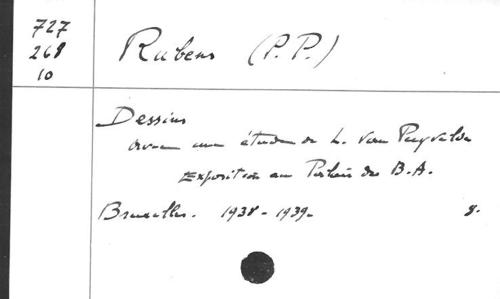 727
268
10
Rubens (P.P.)
Dessins
avec une étude de L. Van Puyvelde
Exposition au Palais des B.A.
Bruxelles. 1938-1939.
8.